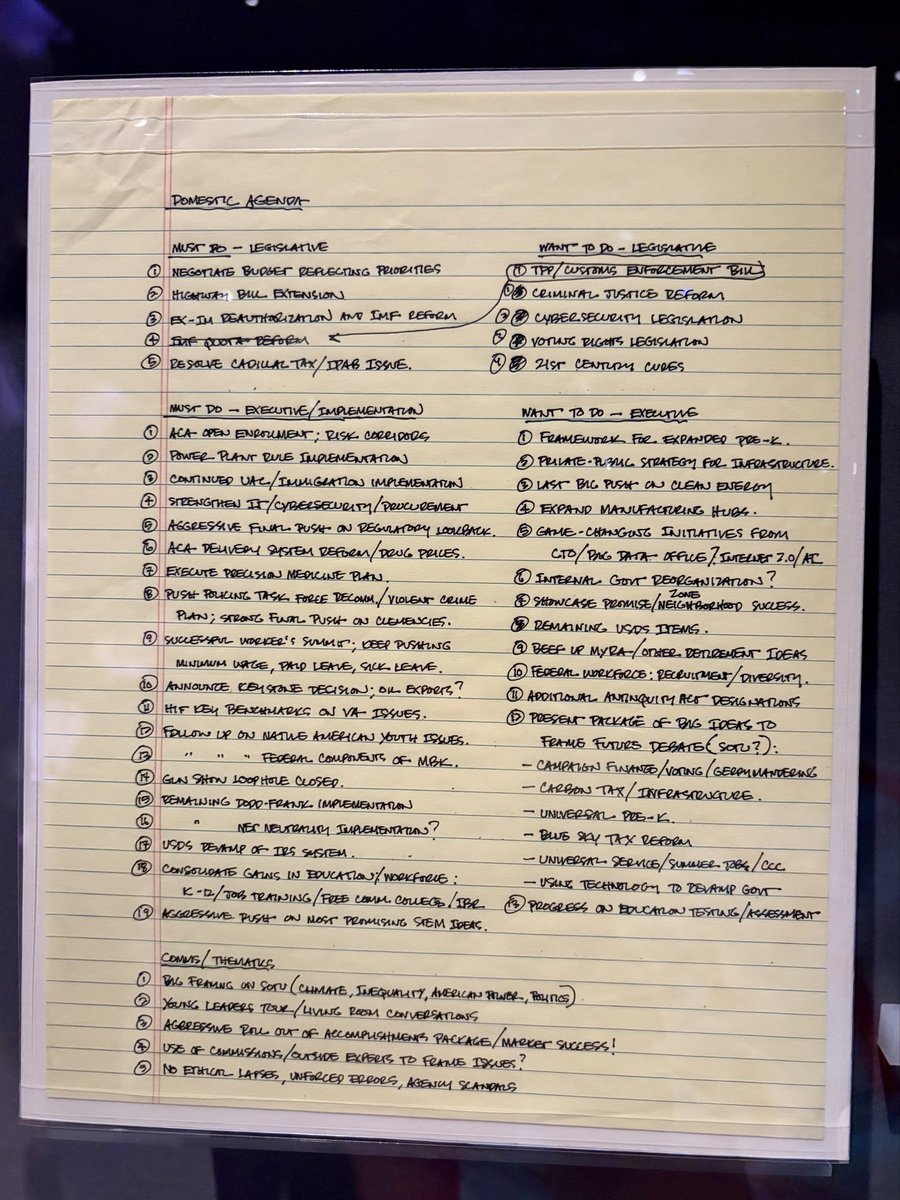 DOMESTIC AGENDA
MUST DO – LEGISLATIVE
① NEGOTIATE BUDGET REFLECTING PRIORITIES
② HIGHWAY BILL EXTENSION
③ EX-IM REAUTHORIZATION AND IMF REFORM
④ IMF QUOTA REFORM
⑤ RESOLVE CADILLAC TAX/IPAB ISSUE.
WANT TO DO – LEGISLATIVE
① TPP/CUSTOMS ENFORCEMENT BILL
① CRIMINAL JUSTICE REFORM
② CYBERSECURITY LEGISLATION
③ VOTING RIGHTS LEGISLATION
④ 21ST CENTURY CURES
MUST DO – EXECUTIVE/IMPLEMENTATION
① ACA OPEN ENROLLMENT; RISK CORRIDORS
② POWER PLANT RULE IMPLEMENTATION
③ CONTINUED UAC/IMMIGRATION IMPLEMENTATION
④ STRENGTHEN IT/CYBERSECURITY/PROCUREMENT
⑤ AGGRESSIVE FINAL PUSH ON REGULATORY LOOKBACK.
⑥ ACA DELIVERY SYSTEM REFORM/DRUG PRICES.
⑦ EXECUTE PRECISION MEDICINE PLAN.
⑧ PUSH POLICING TASK FORCE RECOMM./VIOLENT CRIME
PLAN; STRONG FINAL PUSH ON CLEMENCIES.
⑨ SUCCESSFUL WORKER'S SUMMIT; KEEP PUSHING
MINIMUM WAGE, PAID LEAVE, SICK LEAVE.
⑩ ANNOUNCE KEYSTONE DECISION; OIL EXPORTS?
⑪ HIT KEY BENCHMARKS ON VA ISSUES.
⑫ FOLLOW UP ON NATIVE AMERICAN YOUTH ISSUES.
⑬ " " " FEDERAL COMPONENTS OF MBK.
⑭ GUN SHOW LOOPHOLE CLOSED.
⑮ REMAINING DODD-FRANK IMPLEMENTATION
⑯ " NET NEUTRALITY IMPLEMENTATION?
⑰ USDS REVAMP OF IRS SYSTEM.
⑱ CONSOLIDATE GAINS IN EDUCATION/WORKFORCE:
K-12/JOB TRAINING/FREE COMM. COLLEGE/IBR
⑲ AGGRESSIVE PUSH ON MOST PROMISING STEM IDEAS.
WANT TO DO – EXECUTIVE
① FRAMEWORK FOR EXPANDED PRE-K.
② PRIVATE-PUBLIC STRATEGY FOR INFRASTRUCTURE.
③ LAST BIG PUSH ON CLEAN ENERGY
④ EXPAND MANUFACTURING HUBS.
⑤ GAME-CHANGING INITIATIVES FROM
CTO/BIG DATA OFFICE?/INTERNET 2.0/AI
⑥ INTERNAL GOVT REORGANIZATION?
⑦ SHOWCASE PROMISE ZONE/NEIGHBORHOOD SUCCESS.
⑧ REMAINING USDS ITEMS.
⑨ BEEF UP MYRA/OTHER RETIREMENT IDEAS
⑩ FEDERAL WORKFORCE: RECRUITMENT/DIVERSITY.
⑪ ADDITIONAL ANTINQUITY ACT DESIGNATIONS
⑫ PRESENT PACKAGE OF BIG IDEAS TO
FRAME FUTURE DEBATE (SOTU?):
– CAMPAIGN FINANCE/VOTING/GERRYMANDERING
– CARBON TAX/INFRASTRUCTURE.
– UNIVERSAL PRE-K.
– BLUE SKY TAX REFORM
– UNIVERSAL SERVICE/SUMMER JOBS/CCC
– USING TECHNOLOGY TO REVAMP GOVT
⑬ PROGRESS ON EDUCATION TESTING/ASSESSMENT
COMMS/THEMATICS
① BIG FRAMING ON SOTU (CLIMATE, INEQUALITY, AMERICAN POWER, POLITICS)
② YOUNG LEADERS TOUR/LIVING ROOM CONVERSATIONS
③ AGGRESSIVE ROLL OUT OF ACCOMPLISHMENTS PACKAGE/MARKET SUCCESS!
④ USE OF COMMISSIONS/OUTSIDE EXPERTS TO FRAME ISSUES?
⑤ NO ETHICAL LAPSES, UNFORCED ERRORS, AGENCY SCANDALS